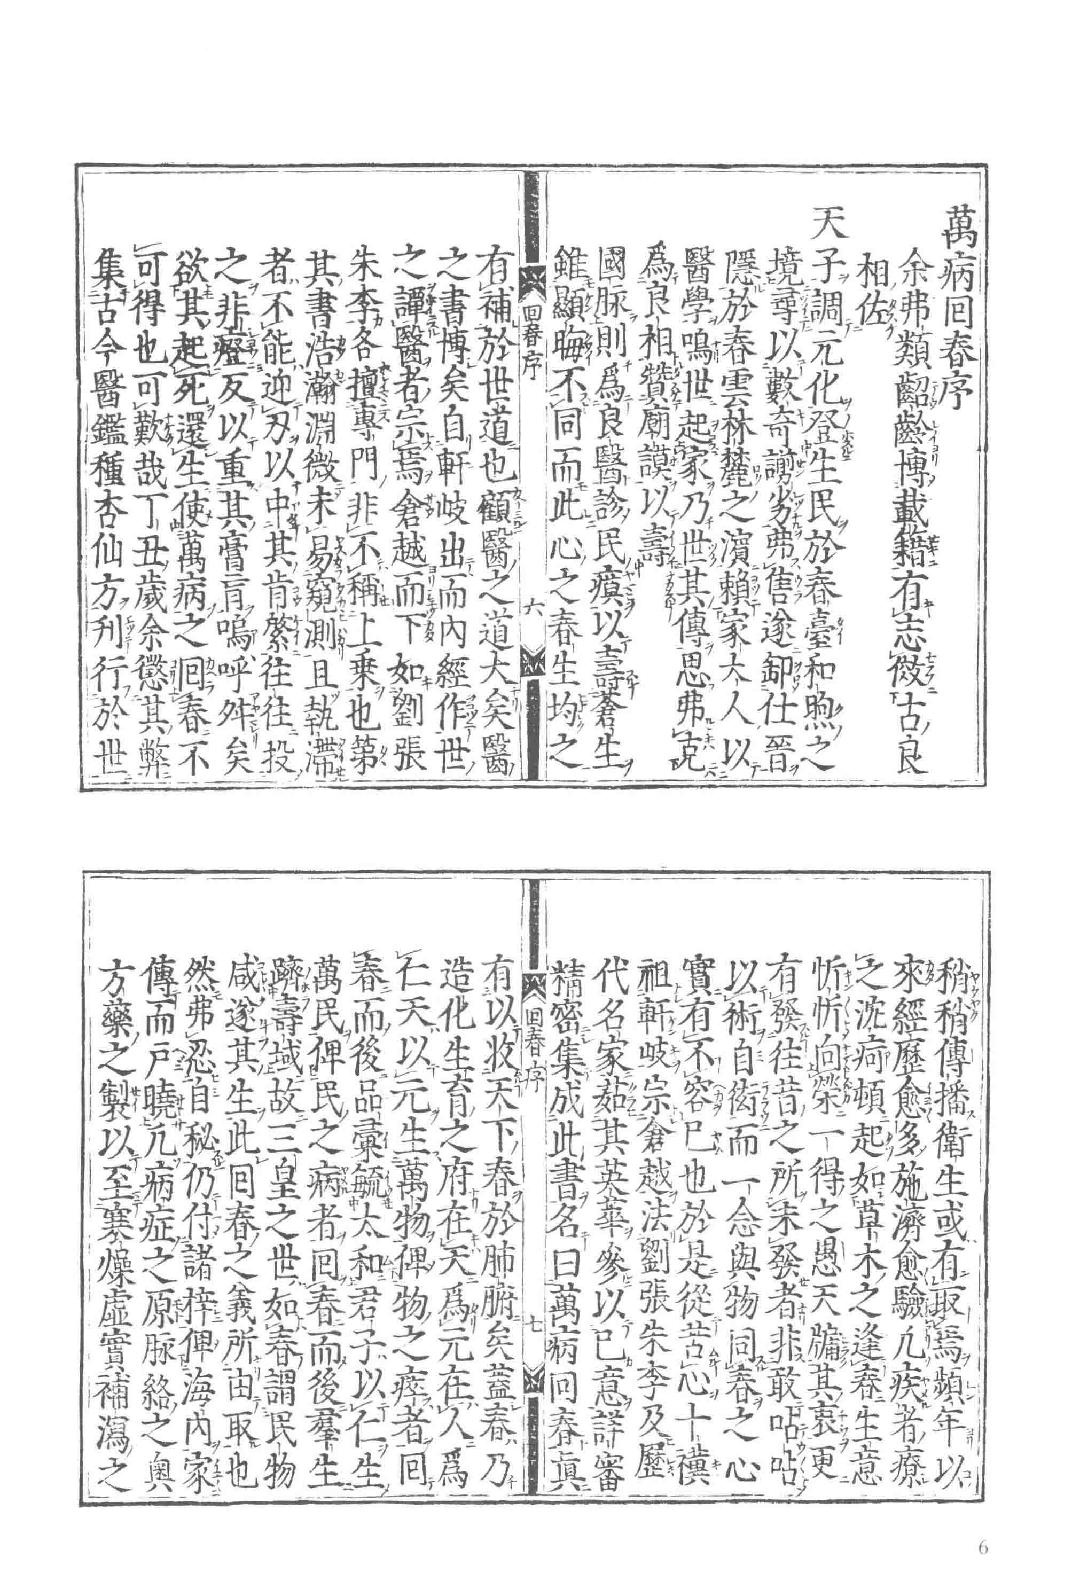 萬病回春序
余弗類齠齡博載籍有志傚古良
相佐
天子調元化登生民於春臺和煦之
境尋以數奇謭劣弗售遂卸仕晉
隱於春雲林麓之濱賴家大人以
醫學鳴世起家乃世其傳思弗克
爲良相贊廟謨以壽
國脉則爲良醫診民瘼以壽蒼生
雖顯晦不同而此心之春生均之
回春序
六
有補於世道也顧醫之道大矣醫
之書博矣自軒岐出而内經作世
之譚醫者宗焉倉越而下如劉張
朱李各擅專門非不稱上乗也第
其書浩瀚淵微未易窺測且執滯
者不能迎刃以中其肯綮往往投
之非症反以重其膏肓嗚呼舛矣
欲其起死還生使萬病之回春不
可得也可歎哉丁丑歲余懲其弊
集古今醫鑑種杏仙方刋行於世
稍稍傳播衛生或有取焉頻年以
來經歷愈多施濟愈驗凢疾者療
之沈痾頓起如草木之逢春生意
忻忻向榮一得之愚天牖其衷更
有發往昔之所未發者非敢呫呫
以術自衒而一念與物同春之心
實有不容已也於是從苦心十禩
祖軒岐宗倉越法劉張朱李及歷
代名家茹其英華參以已意詳審
精密集成此書名曰萬病回春眞
回春序
七
有以收天下春於肺腑矣蓋春乃
造化生育之府在天爲元在人爲
仁天以元生萬物俾物之瘁者回
春而後品彙毓太和君子以仁生
萬民俾民之病者回春而後羣生
躋壽域故三皇之世如春謂民物
咸遂其生此回春之義所由取也
然弗忍自秘仍付諸梓俾海内家
傳而戸曉凢病症之原脉絡之奥
方藥之製以至寒燥虛實補瀉之
6